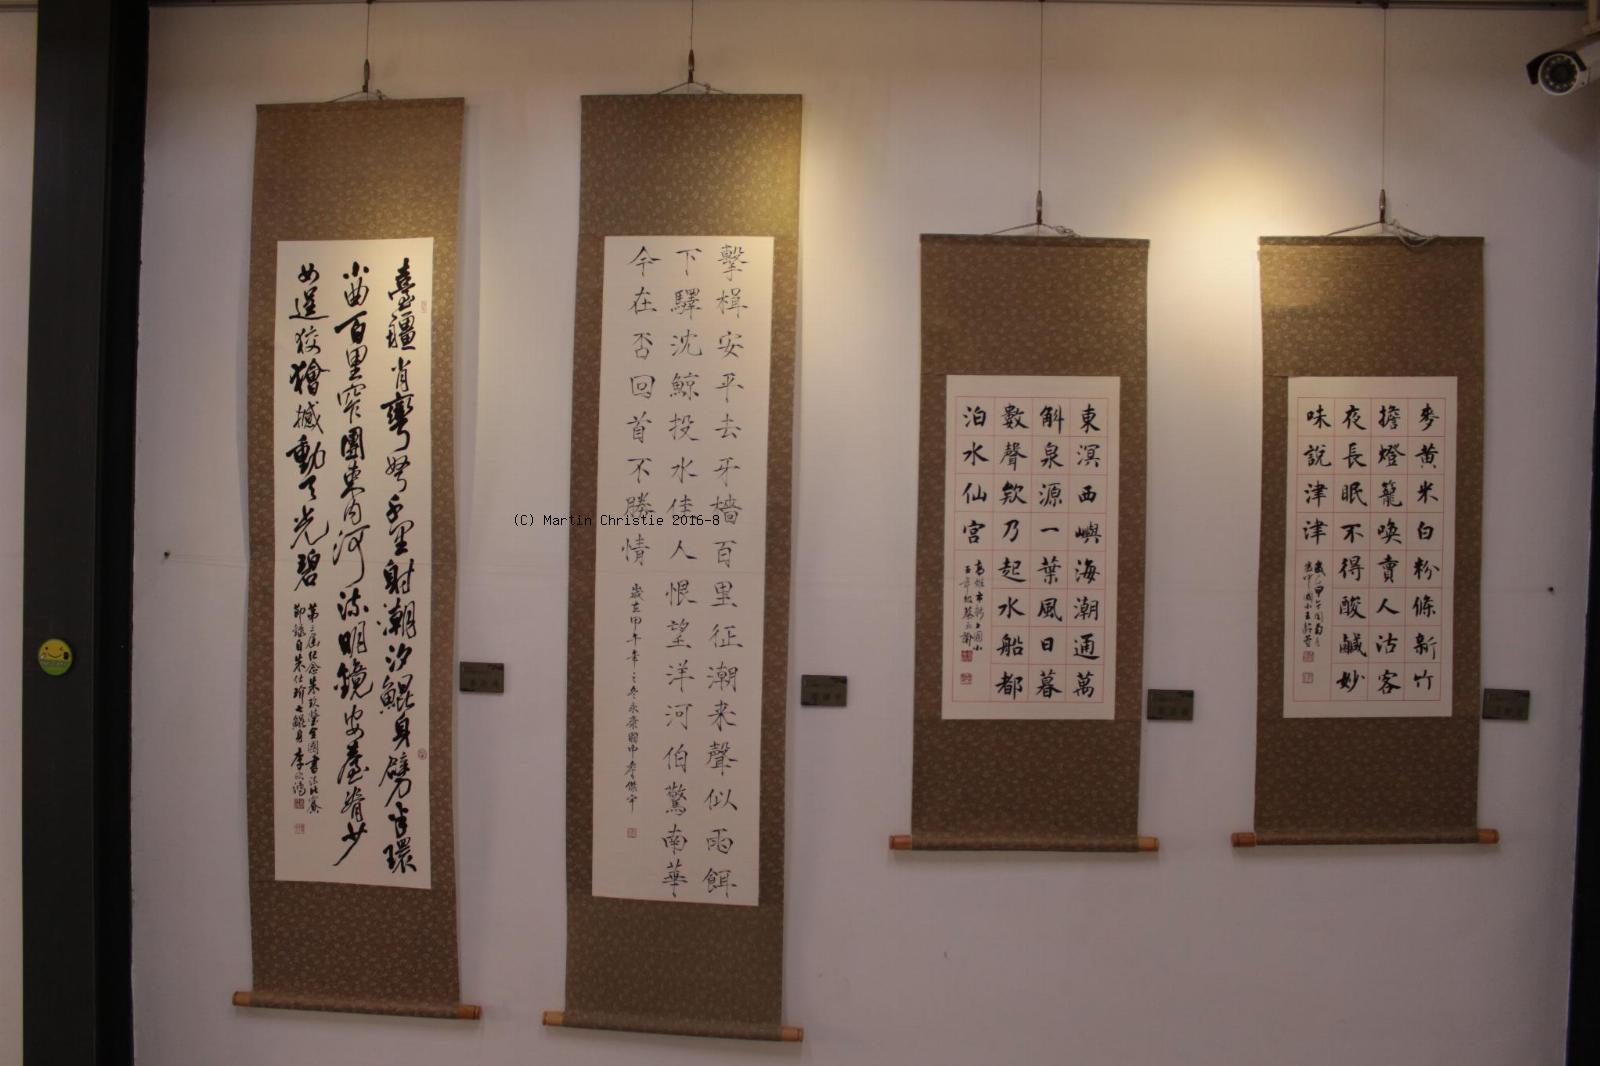 臺疆肖彎弩千里射潮汐鯤身劈半環
小曲百里窄團束內河流明鏡安臺脊少
如逞狡獪撼動天光碧
第三屆紀念朱玖瑩全國書法比賽
節錄自朱仕玠七鯤身
擊楫安平去牙檣百里征潮來聲似雨餌
下驛沈鯨投水佳人恨望洋河伯驚南華
今在否回首不勝情
歲在甲午年
東溟西嶼海潮通萬
斛泉源一葉風日暮
數聲欸乃起水船都
泊水仙宮
高雄市新上國小
麥黃米白粉條新竹
擔燈籠喚賣人沽客
夜長眠不得酸鹹妙
味說津津
(C) Martin Christie 2016-8